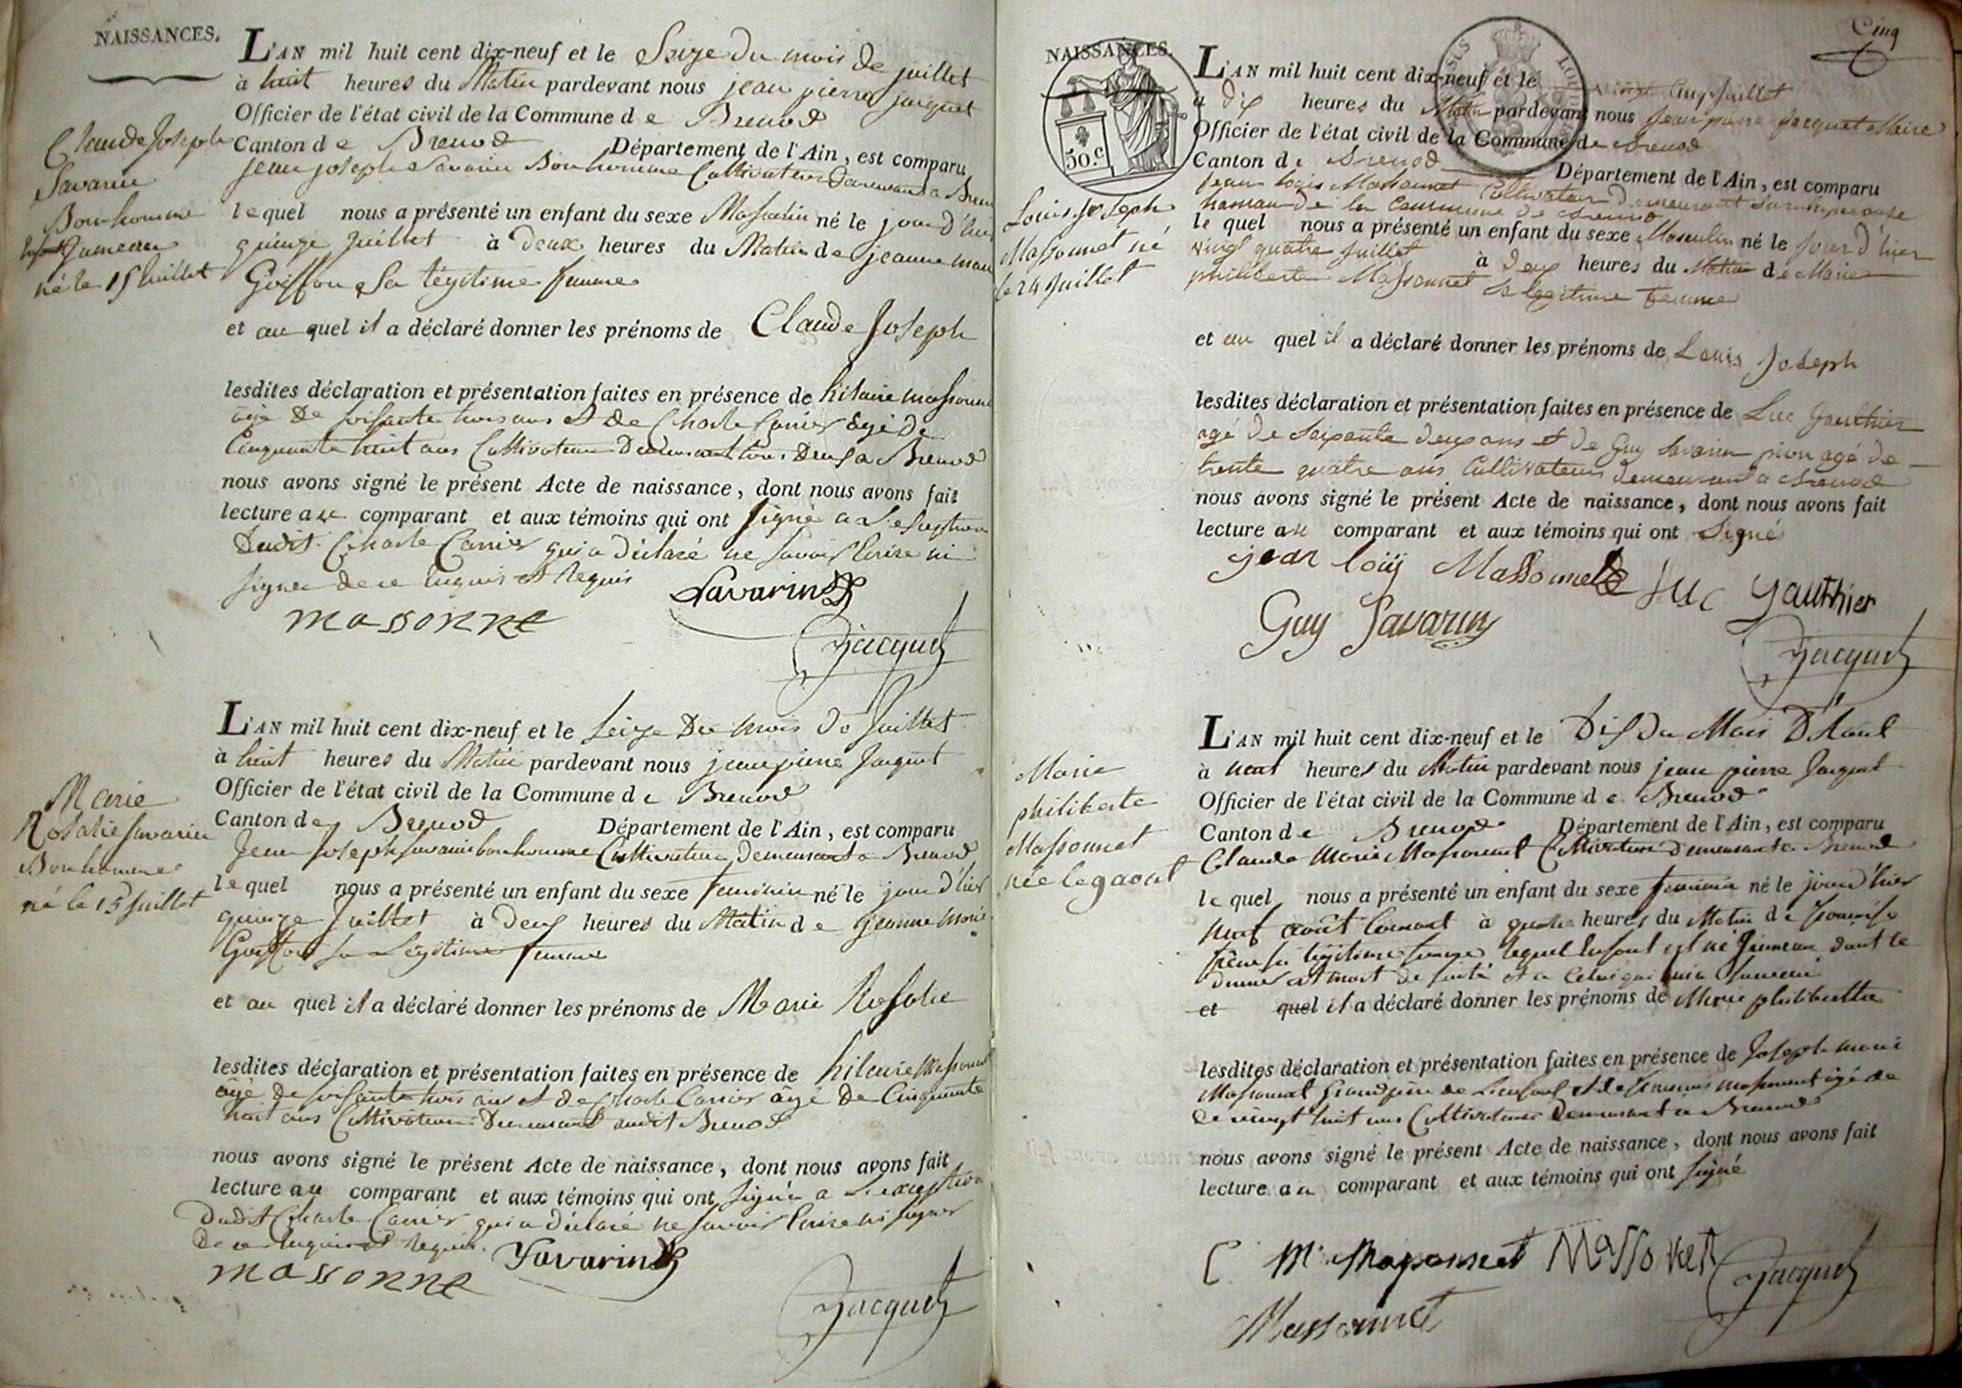 NAISSANCES.
L'AN mil huit cent dix-neuf et le Seize du mois de juillet
à huit heures du Matin pardevant nous jean pierre jacquet
Officier de l'état civil de la Commune de Brenod
Canton de Brenod Département de l'Ain, est comparu
jean joseph Savarin Bonhomme Cultivateur Demeurant a Breno
lequel nous a présenté un enfant du sexe Masculin né le jour d'hier
quinze juillet à deux heures du Matin de jeanne marie
Goiffon Sa légitime femme
et au quel il a déclaré donner les prénoms de Claude Joseph
lesdites déclaration et présentation faites en présence de hilaire massonne
âgé De soissante trois ans et de Charle Carrier âgé De
Cinquante huit ans Cultivateurs Demeurant tous Deux a Brenod
nous avons signé le présent Acte de naissance, dont nous avons fait
lecture au comparant et aux témoins qui ont signé a L'exeption
Dudit Charle Carrier qui a déclaré ne savoir Ecrire ni
signer de ce enquis et Requis
Savarin
massonne
Jacquet
Claude Joseph
Savarin
Bonhomme
jumeau
né le 15 Juillet
L'AN mil huit cent dix-neuf et le Seize Du mois de Juillet
à huit heures du Matin pardevant nous jean pierre Jacquet
Officier de l'état civil de la Commune de Brenod
Canton de Brenod Département de l'Ain, est comparu
Jean Joseph Savarin bonhomme Cultivateur Demeurant a Brenod
lequel nous a présenté un enfant du sexe feminin né le jour d'hier
quinze Juillet à Deux heures du Matin de jeanne Marie
Goiffon sa Légitime femme
et au quel il a déclaré donner les prénoms de Marie Rosalie
lesdites déclaration et présentation faites en présence de hilaire Massonne
âgé de soissante trois ans et de Charle Carrier âgé De Cinquante
huit ans Cultivateurs Demeurant audit Brenod
nous avons signé le présent Acte de naissance, dont nous avons fait
lecture au comparant et aux témoins qui ont signé a L'exeption
Dudit Charle Carrier qui a déclaré ne savoir Ecrire ni signer
De ce enquis et Requis.
Savarin
massonne
Jacquet
Marie
Rosalie Savarin
Bonhomme
né le 15 Juillet
Cinq
NAISSANCES.
50.c
L'AN mil huit cent dix-neuf et le vingt Cinq Juillet
à dix heures du Matin pardevant nous Jean pierre Jacquet Maire
Officier de l'état civil de la Commune de Brenod
Canton de Brenod Département de l'Ain, est comparu
Jean Louis Massonnet Cultivateur Demeurant
hameau de la Commune de Brenod
lequel nous a présenté un enfant du sexe Masculin né le Jour d'hier
vingt quatre Juillet à Deux heures du Matin de Marie
philiberte Massonnet Sa legitime femme
et au quel il a déclaré donner les prénoms de Louis Joseph
lesdites déclaration et présentation faites en présence de Luc Gauthier
agé De Soixante deux ans et de Guy Savarin pion agé de
trente quatre ans Cultivateurs demeurant a Brenod
nous avons signé le présent Acte de naissance, dont nous avons fait
lecture au comparant et aux témoins qui ont Signés
jean loüy Massonnet
luc gauthier
Guy Savarin
Jacquet
Louis Joseph
Massonnet né
le 24 Juillet
L'AN mil huit cent dix-neuf et le Dix Du Mois D'Aout
à neuf heures du Matin pardevant nous jean pierre Jacquet
Officier de l'état civil de la Commune de Brenod
Canton de Brenod Département de l'Ain, est comparu
Claude Marie Massonnet Cultivateur Demeurant a Brenod
lequel nous a présenté un enfant du sexe feminin né le jour d'hier
neuf aout Courant à quatre heures du Matin de
sa légitime femme lequel Enfant est né Jumeau dont le
dernier est mort
et quel il a déclaré donner les prénoms de Marie philiberthe
lesdites déclaration et présentation faites en présence de Joseph marie
Massonnet Grandpère de L'enfant et de massonnet âgé de
de vingt huit ans Cultivateurs Demeurant à Brenod
nous avons signé le présent Acte de naissance, dont nous avons fait
lecture au comparant et aux témoins qui ont signé
C Mie Massonnet
Massonet
Jacquet
Massonnet
Marie
philiberte
Massonnet
née le 9 aout